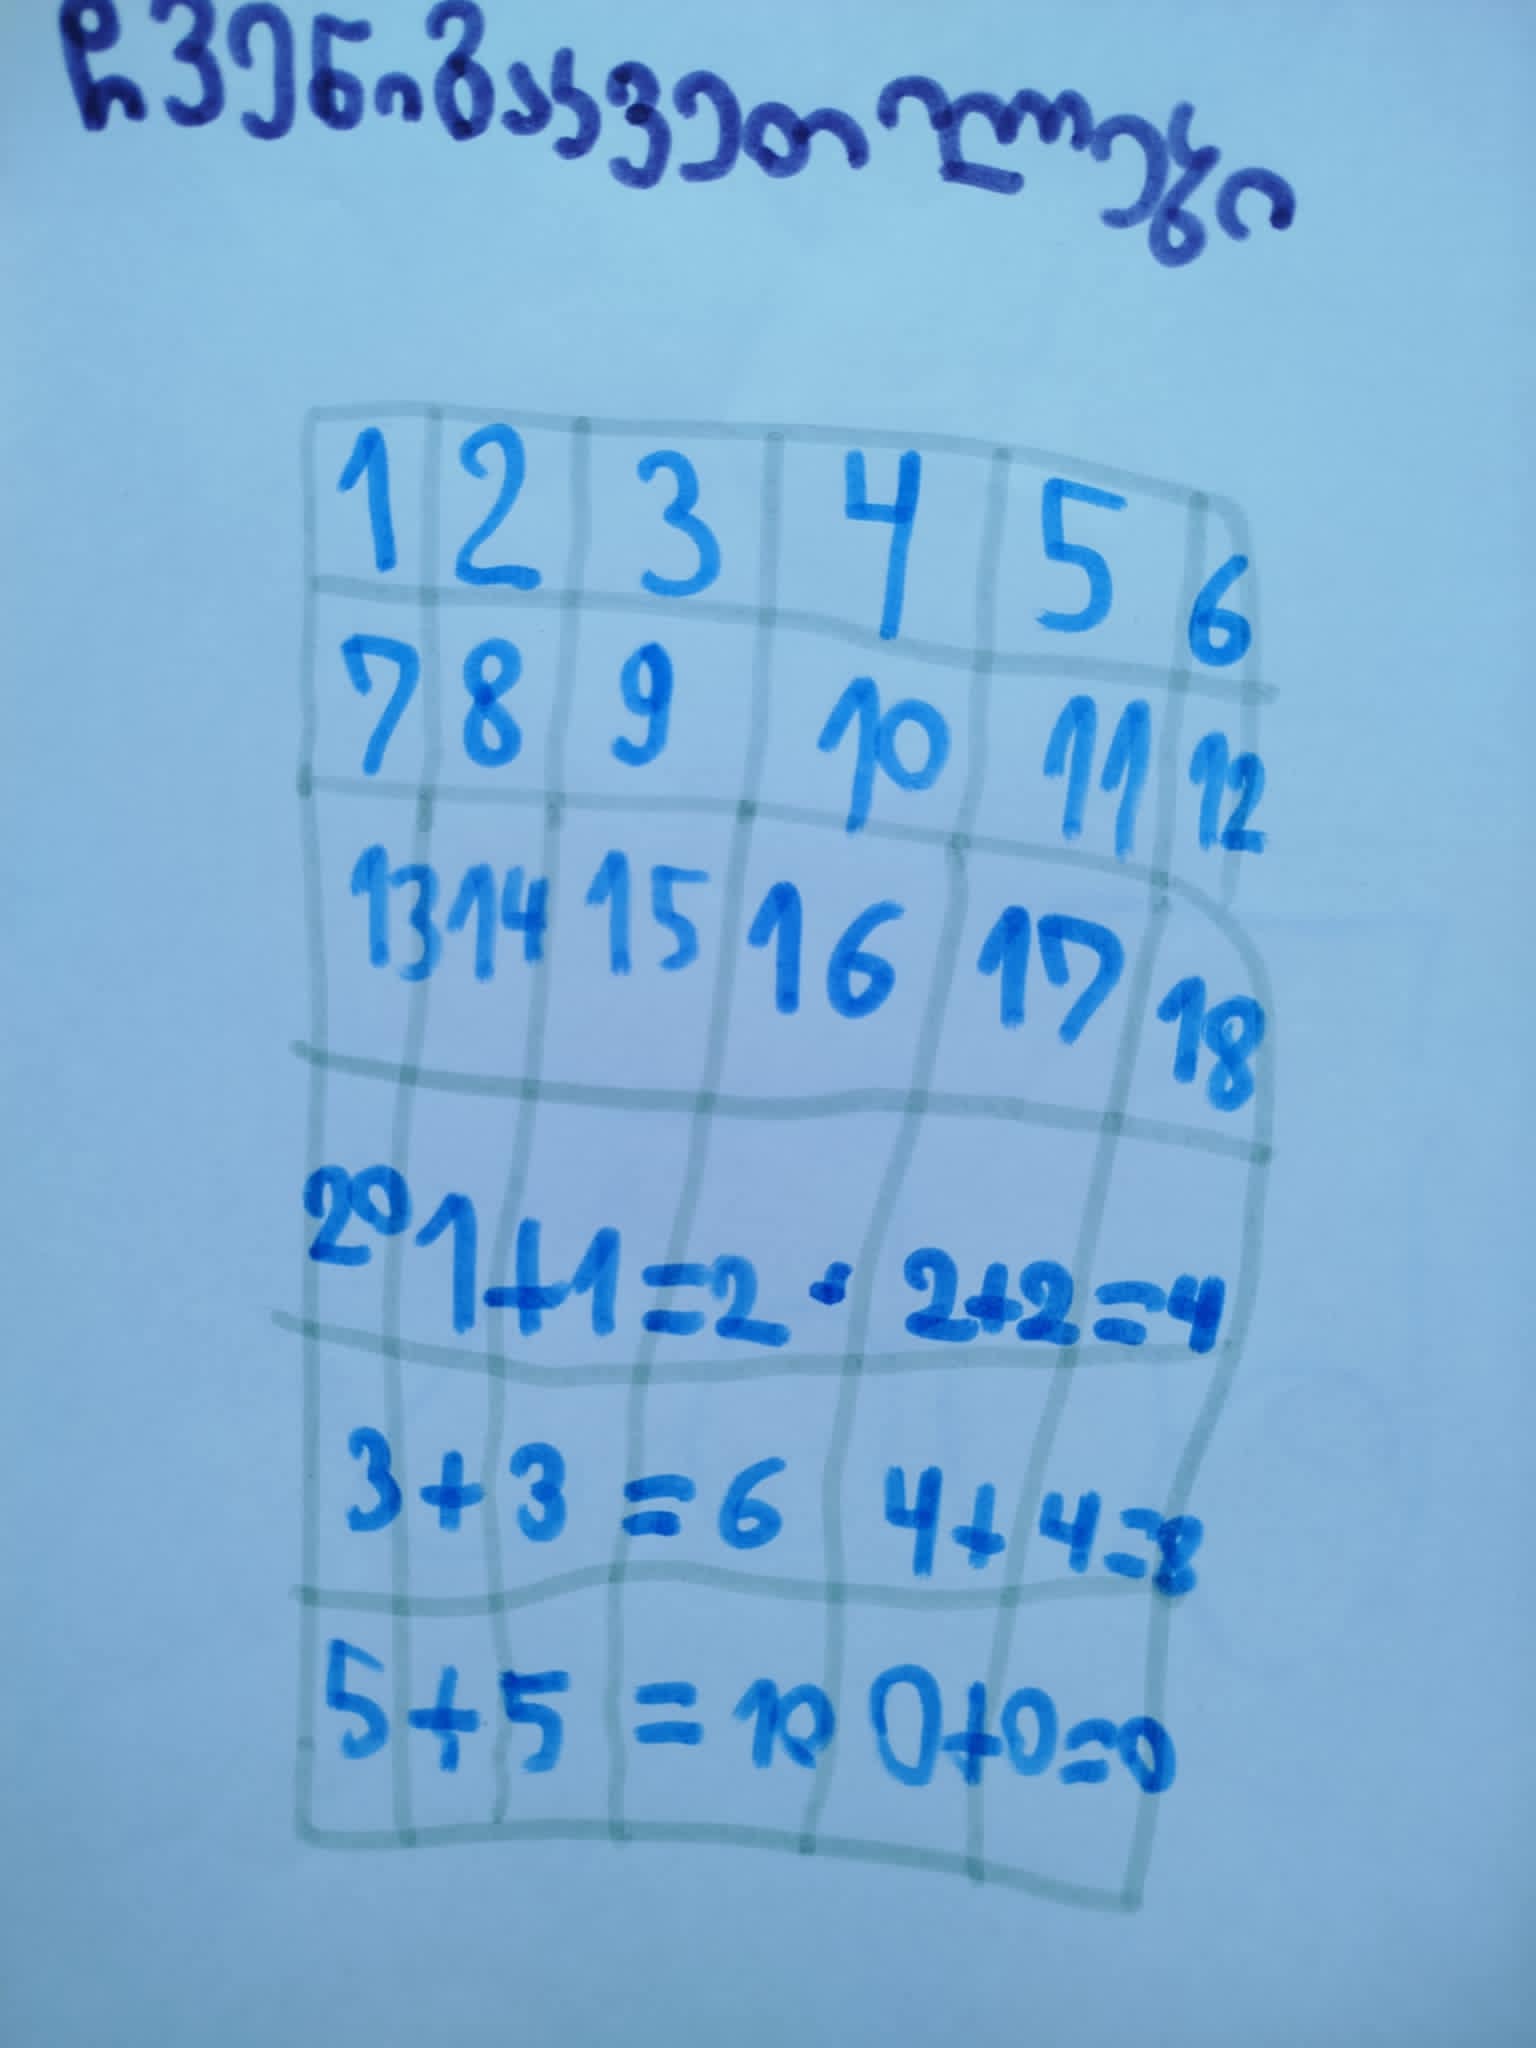 ჩვენიგაკვეთილები
1 2 3 4 5 6
7 8 9 10 11 12
13 14 15 16 17 18
20 1+1=2 · 2+2=4
3+3=6 4+4=8
5+5=10 0+0=0